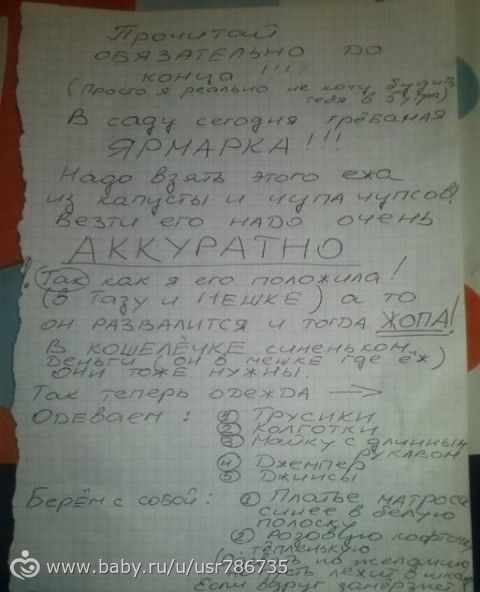 Прочитай
ОБЯЗАТЕЛЬНО ДО
конца !!!
(Просто я реально не хочу будить
тебя в 5 утра)
В саду сегодня грёбаная
ЯРМАРКА!!!
Надо взять этого ежа
из капусты и чупа чупсов!
Везти его надо очень
АККУРАТНО
Так как я его положила!
(В тазу и мешке) а то
он развалится и тогда ЖОПА!
В кошелёчке синеньком
деньги (он в мешке где ёж)
они тоже нужны.
Так теперь одежда →
Одеваем: ① Трусики
② Колготки
③ Майку с длинным
рукавом
④ Джемпер
⑤ Джинсы
Берём с собой: ① Платье матроса
синее в белую
полоску
② Розовую кофточку
тёпленькую
по желанию
лежит в
Если вдруг замёрзнет
www.baby.ru/u/usr786735